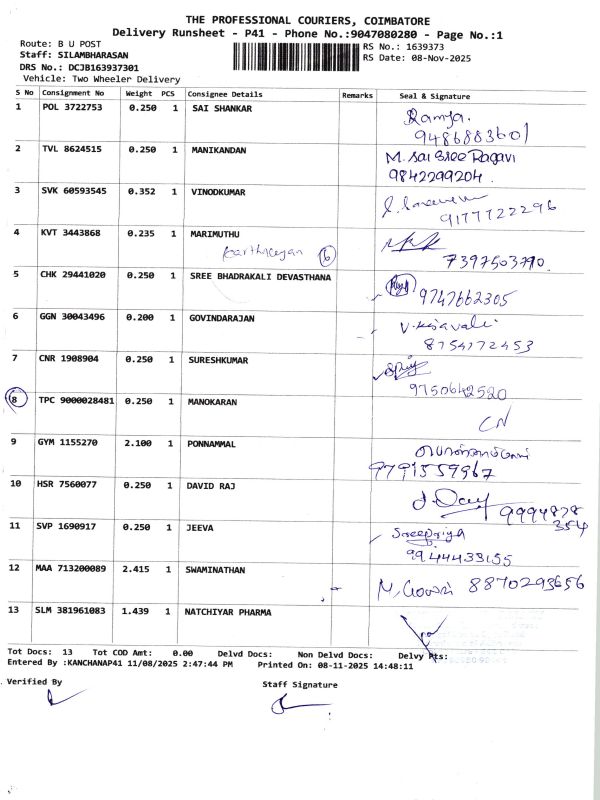 THE PROFESSIONAL COURIERS, COIMBATORE
Delivery Runsheet - P41 - Phone No.:9047080280 - Page No.:1
Route: B U POST RS No.: 1639373
Staff: SILAMBHARASAN RS Date: 08-Nov-2025
DRS No.: DCJB163937301
Vehicle: Two Wheeler Delivery
S No Consignment No Weight PCS Consignee Details Remarks Seal & Signature
1 POL 3722753 0.250 1 SAI SHANKAR Ramya.
9486883601
2 TVL 8624515 0.250 1 MANIKANDAN M. Sai Sree Ragavi
9842299204.
3 SVK 60593545 0.352 1 VINODKUMAR
9177722296
4 KVT 3443868 0.235 1 MARIMUTHU
Karthikeyan 6 7397503790.
5 CHK 29441020 0.250 1 SREE BHADRAKALI DEVASTHANA
9747662305
6 GGN 30043496 0.200 1 GOVINDARAJAN
8754172453
7 CNR 1908904 0.250 1 SURESHKUMAR
9750642520
8 TPC 9000028481 0.250 1 MANOKARAN CN
9 GYM 1155270 2.100 1 PONNAMMAL
9791559967
10 HSR 7560077 0.250 1 DAVID RAJ
9994878
354
11 SVP 1690917 0.250 1 JEEVA Sreepriya
9944433155
12 MAA 713200089 2.415 1 SWAMINATHAN N. Gowri 8870293656
13 SLM 381961083 1.439 1 NATCHIYAR PHARMA
Tot Docs: 13 Tot COD Amt: 0.00 Delvd Docs: Non Delvd Docs: Delvy Pts:
Entered By :KANCHANAP41 11/08/2025 2:47:44 PM Printed On: 08-11-2025 14:48:11
Verified By Staff Signature